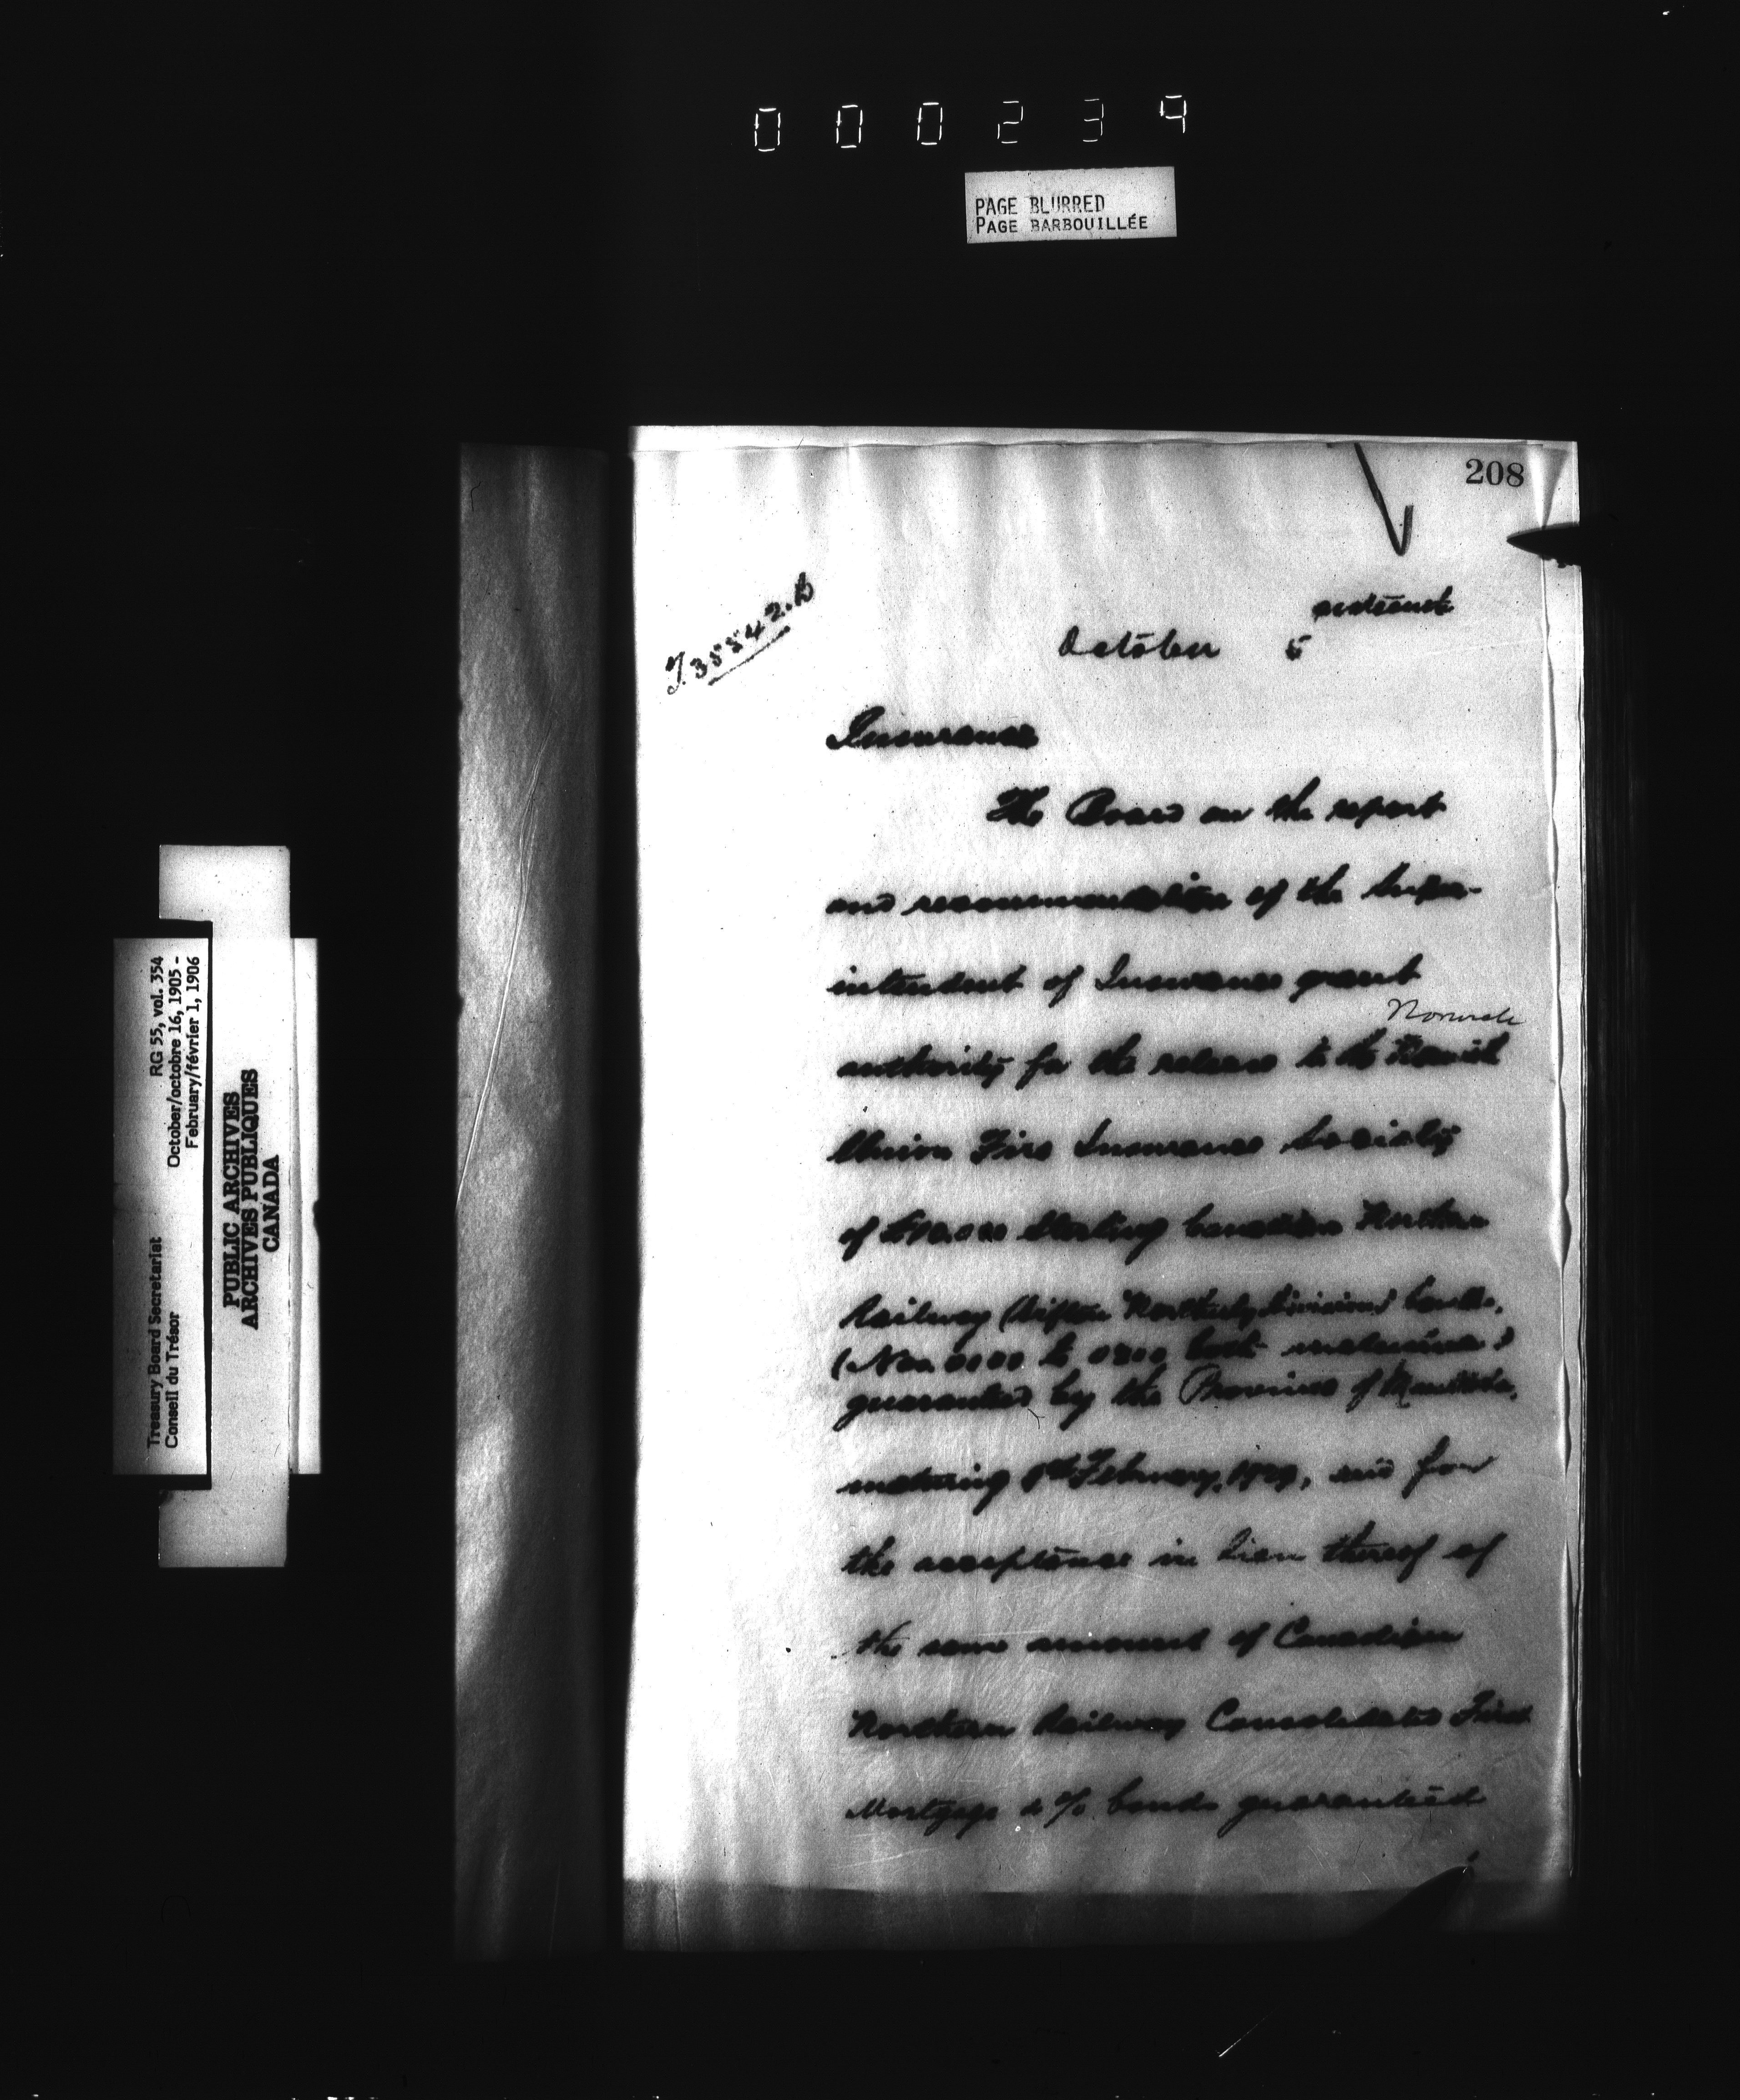 000234
PAGE BLURRED
PAGE BARBOUILLÉE
208
T. 35542.B
sixteenth
October 5
Insurance
The Board on the report
and recommendation of the Super-
intendent of Insurance grant
Norwich
authority for the release to the Norwich
Union Fire Insurance Society
of £10.000 Sterling Canadian Northern
Railway Division) bonds,
(Nos. to both inclusive)
guaranteed by the Province of Manitoba,
maturing February, and for
the acceptance in lieu thereof of
the same amount of Canadian
Northern Railway Consolidated First
Mortgage 4% bonds guaranteed
Treasury Board Secretariat RG 55, vol. 354
Conseil du Trésor October/octobre 16, 1905 -
February/février 1, 1906
PUBLIC ARCHIVES
ARCHIVES PUBLIQUES
CANADA